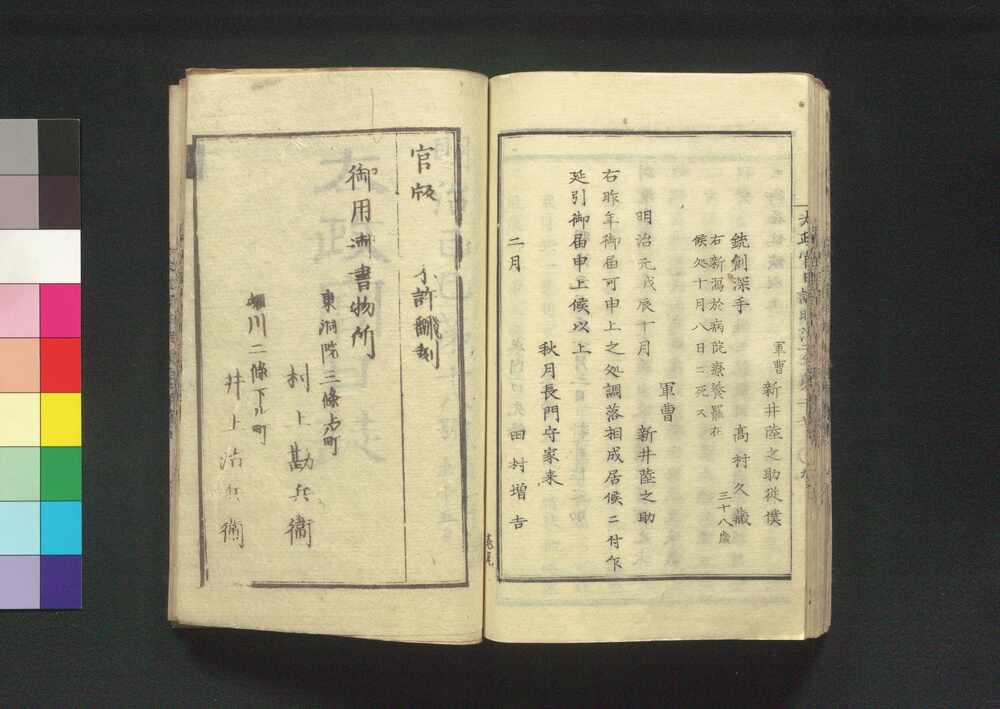 軍曹 新井陸之助従僕
銃創深手 高村久蔵 三十八歳
右新潟於病院療養罷在
候処十月八日ニ死ス
軍曹 新井陸之助
明治元戊辰十月
右昨年御届可申上之処調落相成居候ニ付乍
延引御届申上候以上
秋月長門守家来
二月 田村増吉
官版 不許翻刻
御用御書物所
東洞院三條上町
村上勘兵衛
堀川二條下ル町
井上治兵衛